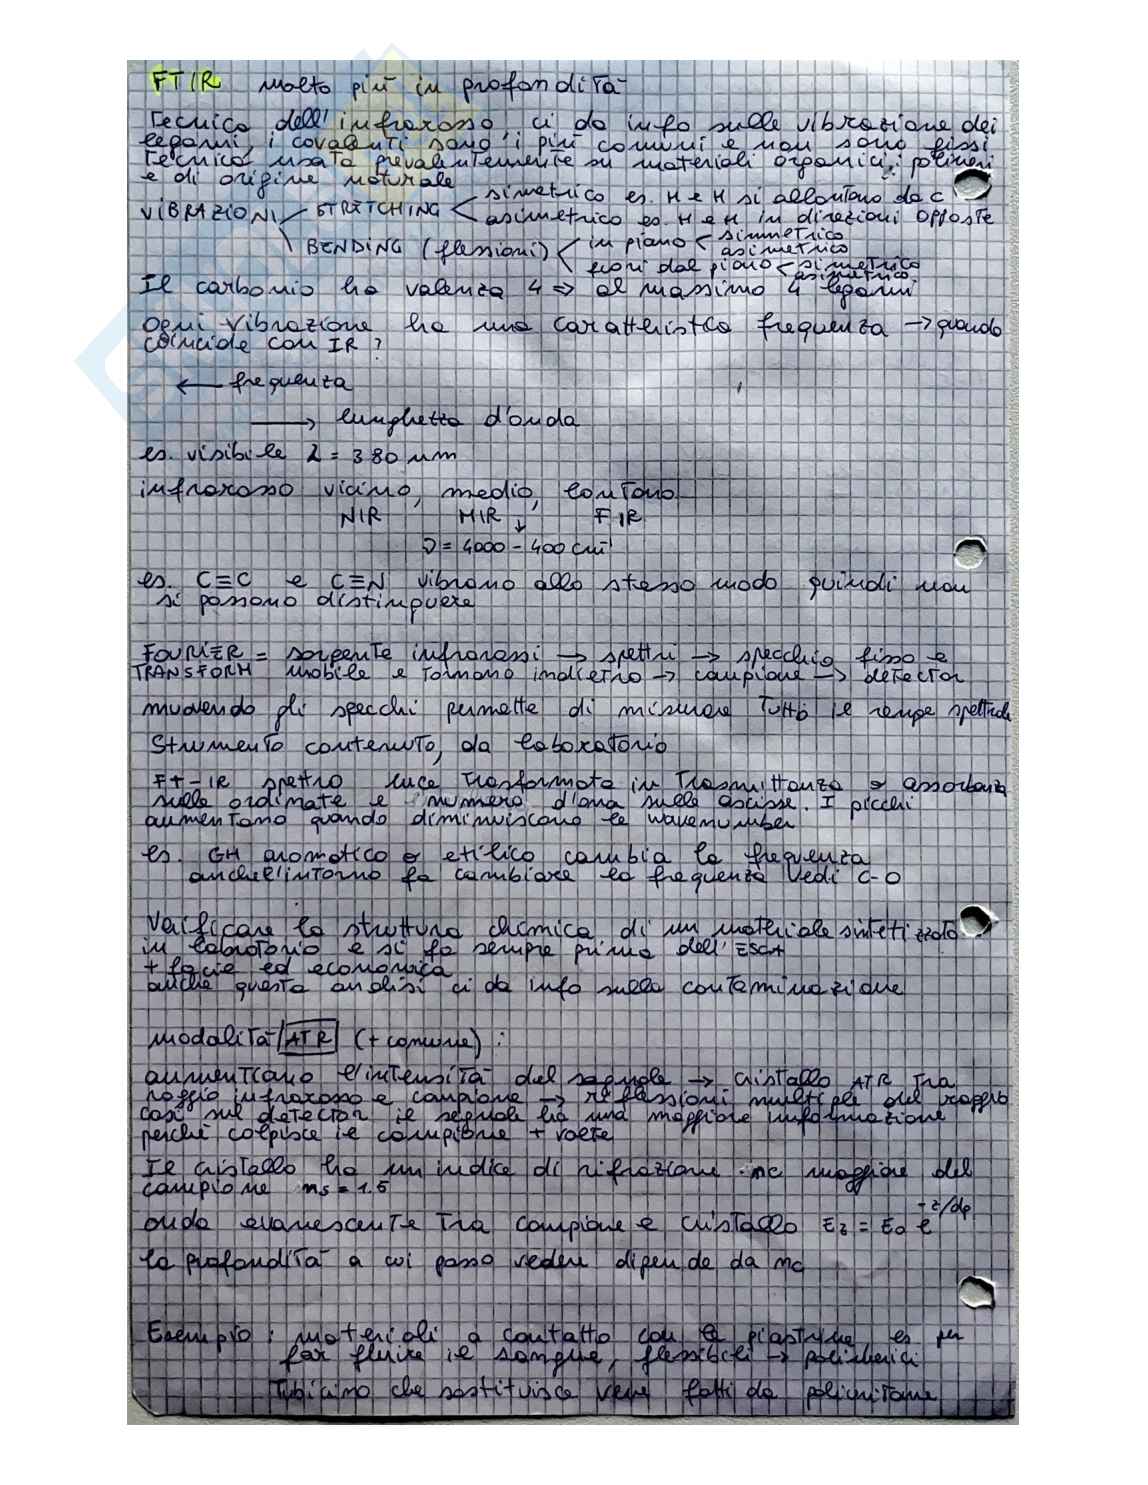 FTIR molto più in profondità
Tecnica dell'infrarosso, ci da info sulle vibrazione dei
legami, i covalenti sono i più comuni e non sono fissi
Tecnica usata prevalentemente su materiali organici: polimeri
e di origine naturale
VIBRAZIONI STRETCHING simetrico es. H e H si allontano da C
asimetrico es. H e H in direzioni opposte
BENDING (flessioni) in piano simmetrico
asimetrico
fuori dal piano simetrico
asimetrico
Il carbonio ha valenza 4 => al massimo 4 legami
ogni vibrazione ha una caratteristca frequenza → quando
coincide con IR ?
← frequenza
→ lunghetta d'onda
es. visibile λ = 380 nm
infrarosso vicino, medio, lontano
NIR MIR ↓ FIR
ν = 4000 - 400 cm⁻¹
es. C≡C e C≡N vibrano allo stesso modo quindi non
si possono distinguere
FOURIER = sorgente infrarossi → spettri → specchio fisso e
TRANSFORM mobile e tornano indietro → campione → detector
muovendo gli specchi permette di misurare tutto il range spettrale
Strumento contenuto, da laboratorio
FT-IR spettro luce trasformata in trasmittanza o assorbanza
sulle ordinate e numero d'ona sulle ascisse. I picchi
aumentano quando diminuiscono le wavenumber
es. CH aromatico o etilico cambia la frequenza
anche l'intorno fa cambiare la frequenza vedi C-O
Verificare la struttura chimica di un materiale sintetizzato
in laboratorio e si fa sempre prima dell'ESCA
+ facile ed economica
anche questa analisi ci da info sulla contaminazione
modalità ATR (+ comune) :
aumentiano l'intensità del segnale → cristallo ATR tra
raggio infrarosso e campione → riflessioni multiple del raggio
così sul detector il segnale ha una maggiore informazione
perché colpisce il campione + volte
Il cristallo ha un indice di rifrazione nc maggiore del
campione ns = 1.5
onda evanescente tra campione e cristallo Ez = E0 e^-z/dp
la profondità a cui posso vedere dipende da nc
Esempio : materiali a contatto con le piastrine es per
far fluire il sangue, flessibili → polimerici
Tubicino che sostituisce vene fatti da poliuretano